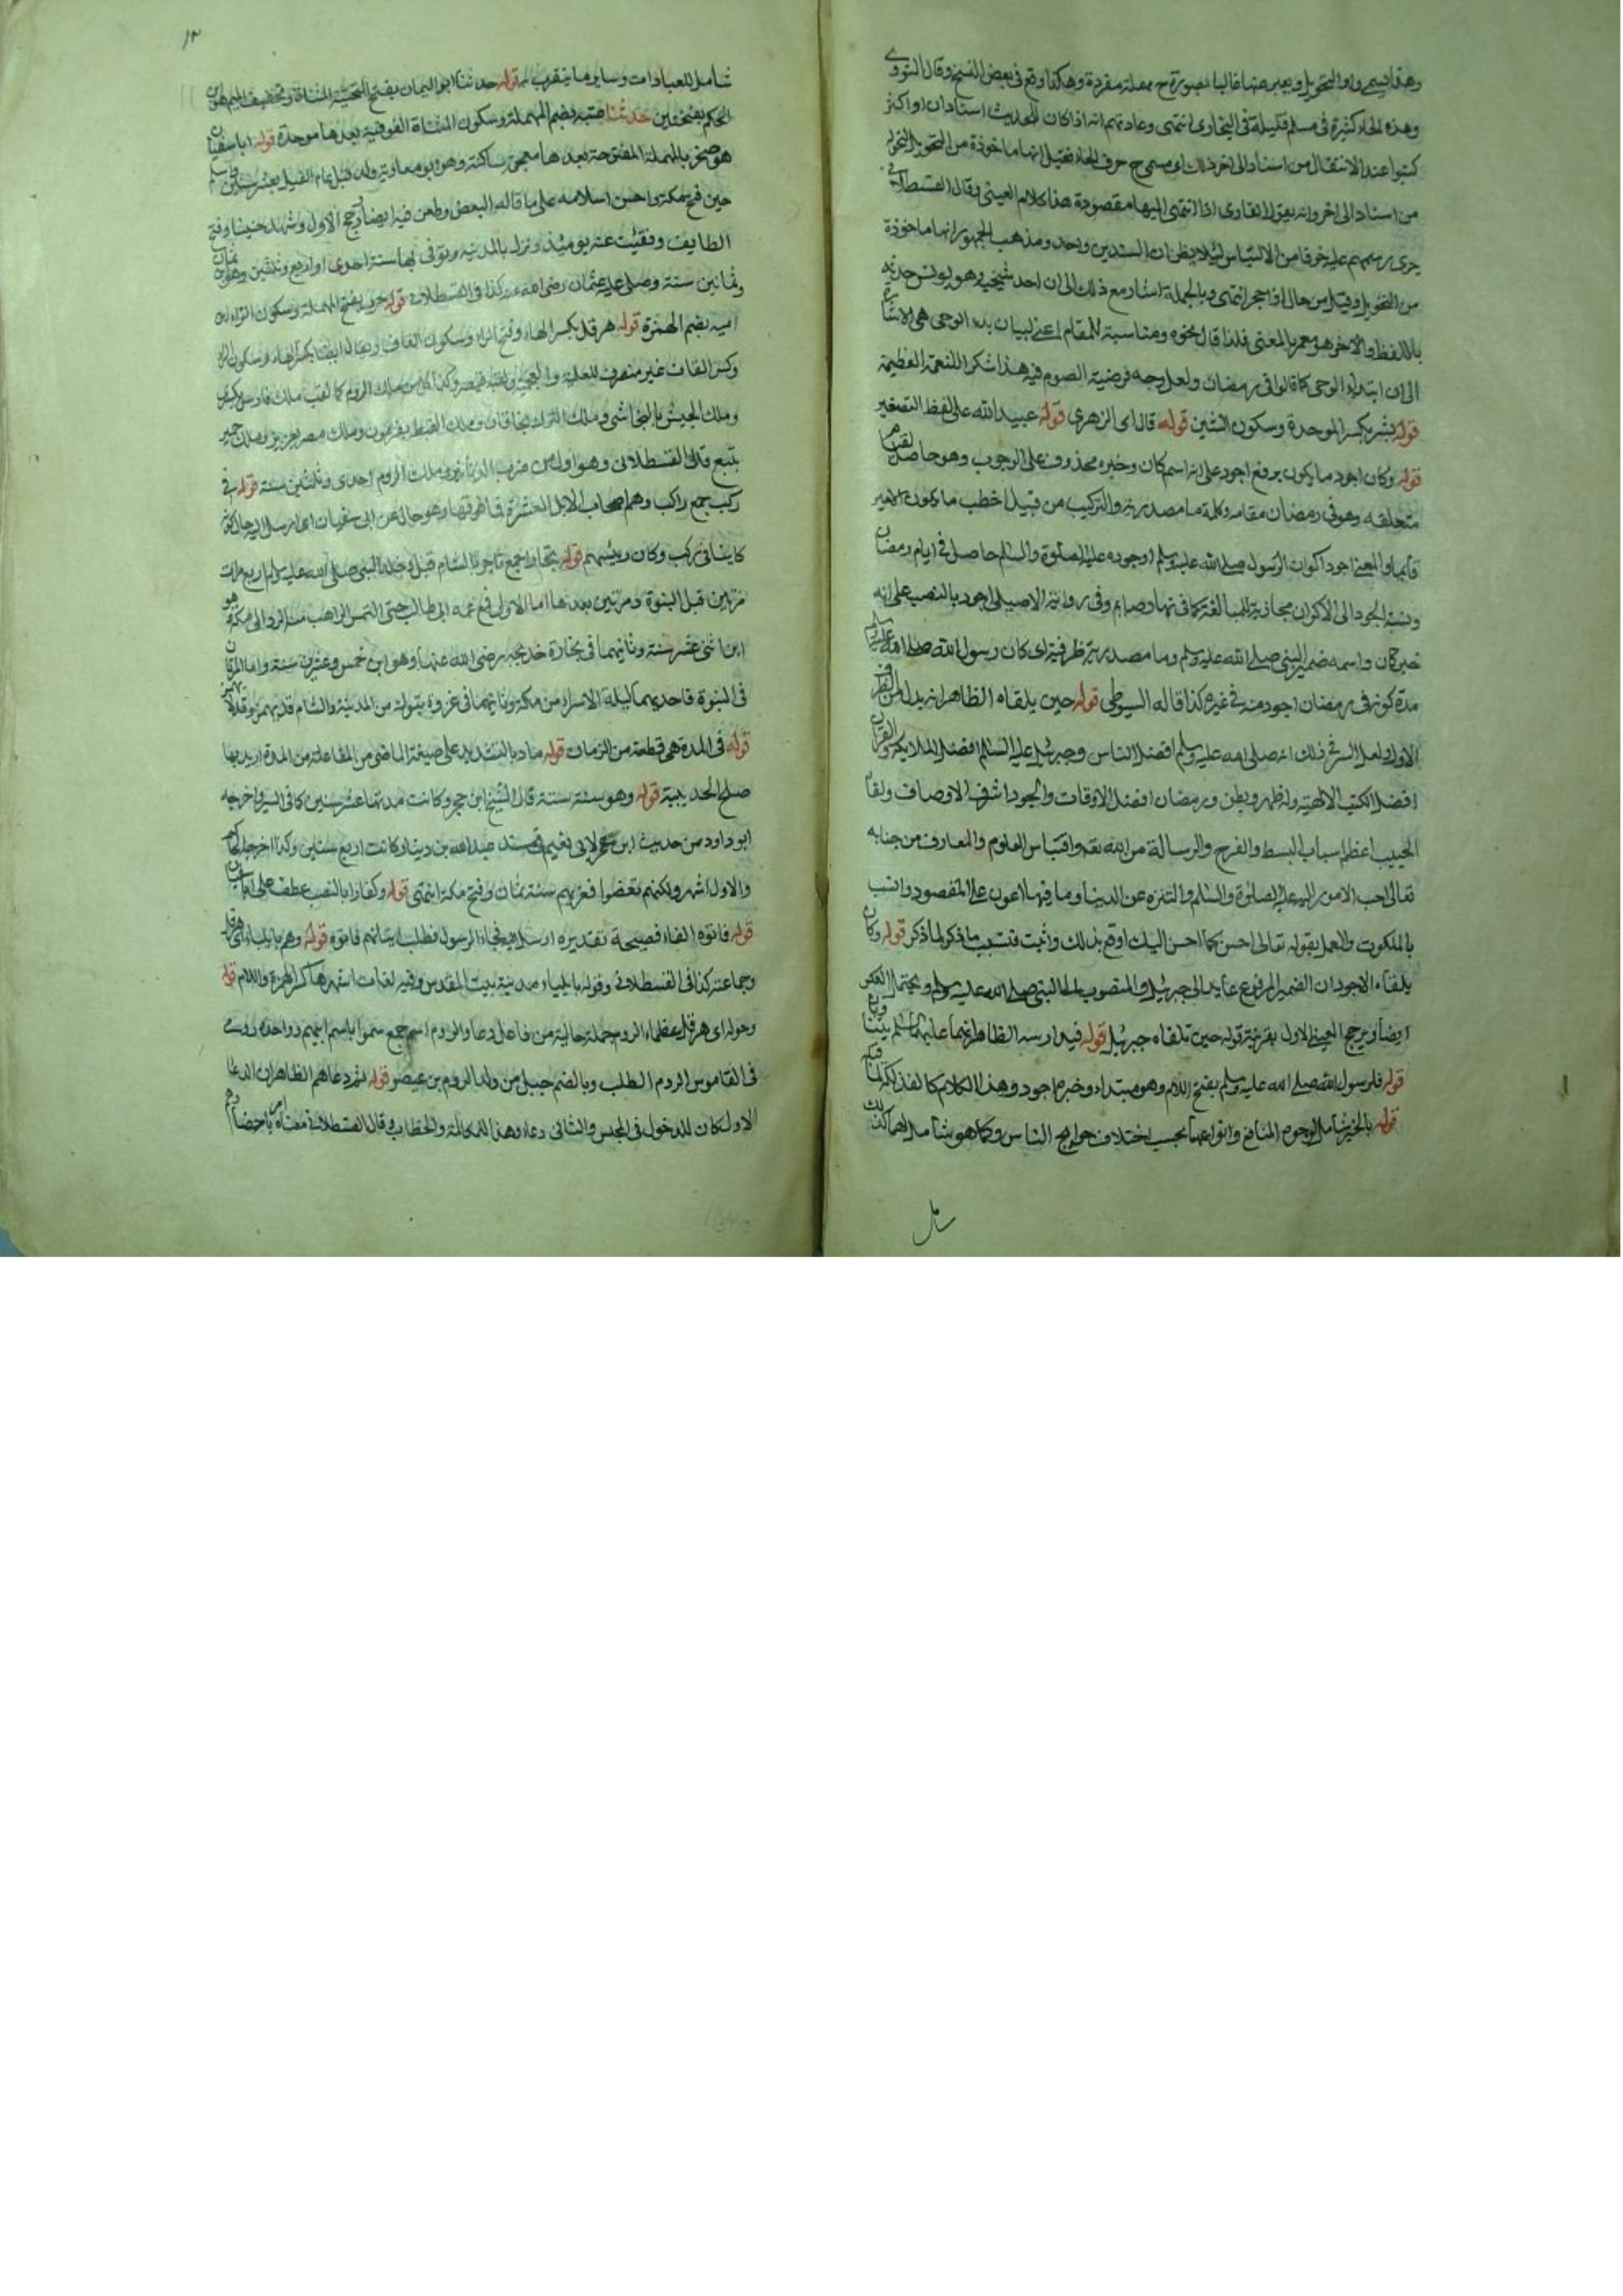 وهذا يسمى واو التحويل ويعبر عنها غالبا بصورة ح مهملة مفردة وهكذا وقع في بعض النسخ وقال النووي
وهذه الحاء كثيرة في مسلم قليلة في البخاري انتهى وعادتهم انه اذا كان للحديث اسنادان او اكثر
كتبوا عند الانتقال من اسناد الى اخر ذلك اى مسمى ح حرف الحاء فقيل انها ماخوذة من التحويل التحوله
من اسناد الى اخر وانه يقول القارى اذا انتهى اليها مقصودة هذا كلام العينى وقال القسطلانى
جرى رسمهم عليه خوفا من الالتباس لئلا يظن ان السندين واحد ومذهب الجمهور انها ماخوذة
من التحويل وقيل من حائل او حجز انتهى وبالجملة اشار مع ذلك الى ان احد شيخيه وهو يونس حدثه
باللفظ والاخر هو معمر بالمعنى فلذا قال نحوه ومناسبته للمقام اعنى لبيان بدء الوحى هى الاشارة
الى ان ابتداء الوحى كما قالوا فى رمضان ولعل وجه فرضية الصوم فيه هذا شكرا للنعمة العظيمة
قوله بشر بكسر الموحدة وسكون الشين قوله قال اى الزهرى قوله عبيد الله على لفظ التصغير
قوله وكان اجود ما يكون برفع اجود على انه اسم كان وخبره محذوف على الوجوب وهو حاصل
متعلقه وهو فى رمضان مقامه وكلمة ما مصدرية والتركيب من قبيل اخطب ما يكون الامير
قائما والمعنى اجود اكوان الرسول صلى الله عليه وسلم او جوده عليه الصلوة والسلام حاصل فى ايام رمضان
ونسبة الجود الى الاكوان مجازية للمبالغة كما فى نهاره صايم وفى رواية الاصيلى اجود بالنصب على انه
خبر كان واسمه ضمير النبى صلى الله عليه وسلم وما مصدرية ظرفية اى كان رسول الله صلى الله عليه وسلم
مدة كونه فى رمضان اجود منه فى غيره كذا قاله السيوطى قوله حين يلقاه الظاهر انه بدل من الظرف
الاول ولعل السر فى ذلك انه صلى الله عليه وسلم افضل الناس وجبريل عليه السلام افضل الملايكة والقران
افضل الكتب الالهية وله ظهر وبطن ورمضان افضل الاوقات والجود اشرف الاوصاف ولقاء
الحبيب اعظم اسباب البسط والفرح والرسالة من الله تعه واقتباس العلوم والمعارف من جنابه
تعالى احب الامور اليه عليه الصلوة والسلام والتنزه عن الدنيا وما فيها اعون على المقصود وانسب
بالملكوت والعمل بقوله تعالى احسن كما احسن الله اليك اوقع بذلك واثبت فتسبب ما ذكر لما ذكر قوله وكان
يلقاه الاجود ان الضمير المرفوع عايد الى جبريل والمنصوب الى النبى صلى الله عليه وسلم ويحتمل العكس
ايضا ويرجح العينى الاول بقرينة قوله حين يلقاه جبريل قوله فيدارسه الظاهر انهما عليهما السلام
قوله فلرسول الله صلى الله عليه وسلم بفتح اللام وهو مبتداء وخبره اجود وهذا الكلام كالفذلكة
قوله بالخير شامل لوجوه المنافع وانواعها بحسب اختلاف حوايج الناس وكما هو شامل لهما كذلك
شامل
١٢
شامل للعبادات وساير ما يتقرب به قوله حدثنا ابو اليمان بفتح التحتية المثناة وتخفيف الميم هو ابن
الحكم بفتحتين حدثنا عتبة بضم المهملة وسكون المثناة الفوقية بعدها موحدة قوله ابا سفيان
هو صخر بالمهملة المفتوحة بعدها معجمة ساكنة وهو ابو معاوية ولد قبل عام الفيل بعشر سنين
حين فتح مكة واحسن اسلامه على ما قاله البعض وطعن فيه ايضا ورجح الاول وشهد حنينا وفتح
الطايف وفقئت عنه يومئذ ونزل بالمدينة وتوفى بها سنة احدى او اربع وثلثين وهو ابن ثمان
وثمانين سنة وصلى عليه عثمان رضى الله عنه كذا فى القسطلانى قوله حرب بفتح المهملة وسكون الراء ابن
امية بضم الهمزة قوله هرقل بكسر الهاء وفتح الراء وسكون القاف ويقال ايضا بكسر الهاء وسكون الراء
وكسر القاف غير منصرف للعلمية والعجمية ولقبه قيصر وكذا كل من ملك الروم كما لقب ملك فارس بكسرى
وملك الحبش بالنجاشى وملك الترك بخاقان وملك القبط بفرعون وملك مصر بعزيز وملك حمير
بتبع قاله القسطلانى وهو اول من ضرب الدنانير وملك الروم احدى وثلثين سنة قوله فى
ركب جمع راكب وهم اصحاب الابل العشرة فما فوقها وهو حال عن ابى سفيان اى ارسل اليه حال كونه
كاينا فى ركب وكان رئيسهم قوله تجارا جمع تاجر بالشام قبل دخله النبى صلى الله عليه وسلم اربع مرات
مرتين قبل النبوة ومرتين بعدها اما الاولى فمع عمه ابى طالب حتى التمس الراهب منه الرد الى مكة وهو
ابن اثنى عشر سنة وثانيهما فى تجارة خديجه رضى الله عنها وهو ابن خمس وعشرين سنة واما المرتان
فى النبوة فاحديهما ليلة الاسراء من مكة وثانيهما فى غزوة تبوك من المدينة والشام
قوله فى المدة هى قطعة من الزمان قوله ماد بالتشديد على صيغة الماضى من المفاعلة من المدة اريد بها
صلح الحديبية قوله وهو سنة ستة قال الشيخ ابن حجر وكانت مدتها عشر سنين كما فى السير واخرجه
ابو داود من حديث ابن عمر لابى نعيم فى مسند عبد الله بن دينار كانت اربع سنين وكذا اخرجه الحاكم
والاول اشهر ولكنهم نقضوا فغزيهم سنة ثمان وفتح مكة انتهى قوله وكفار بالنصب عطف على ابا سفيان
قوله فاتوه الفاء فصيحة تقديره ارسل اليه فجاء الرسول فطلب اتيانهم فاتوه قوله وهم بايلياء اى هرقل
وجماعته كذا فى القسطلانى وقوله بايلياء مدينة بيت المقدس وفيه لغات اشهرها كسر الهمزة واللام قوله
وحوله اى هرقل عظماء الروم جملة حالية من فاعل دعا والروم اسم جمع سموا باسم ابيهم
فى القاموس الروم الطلب وبالضم جيل من ولد الروم بن عيصو قوله ثم دعاهم الظاهر ان الدعا
الاول كان للدخول فى المجلس والثانى دعاء وهذا للمكالمة والخطاب وقال القسطلانى معناه امر باحضارهم